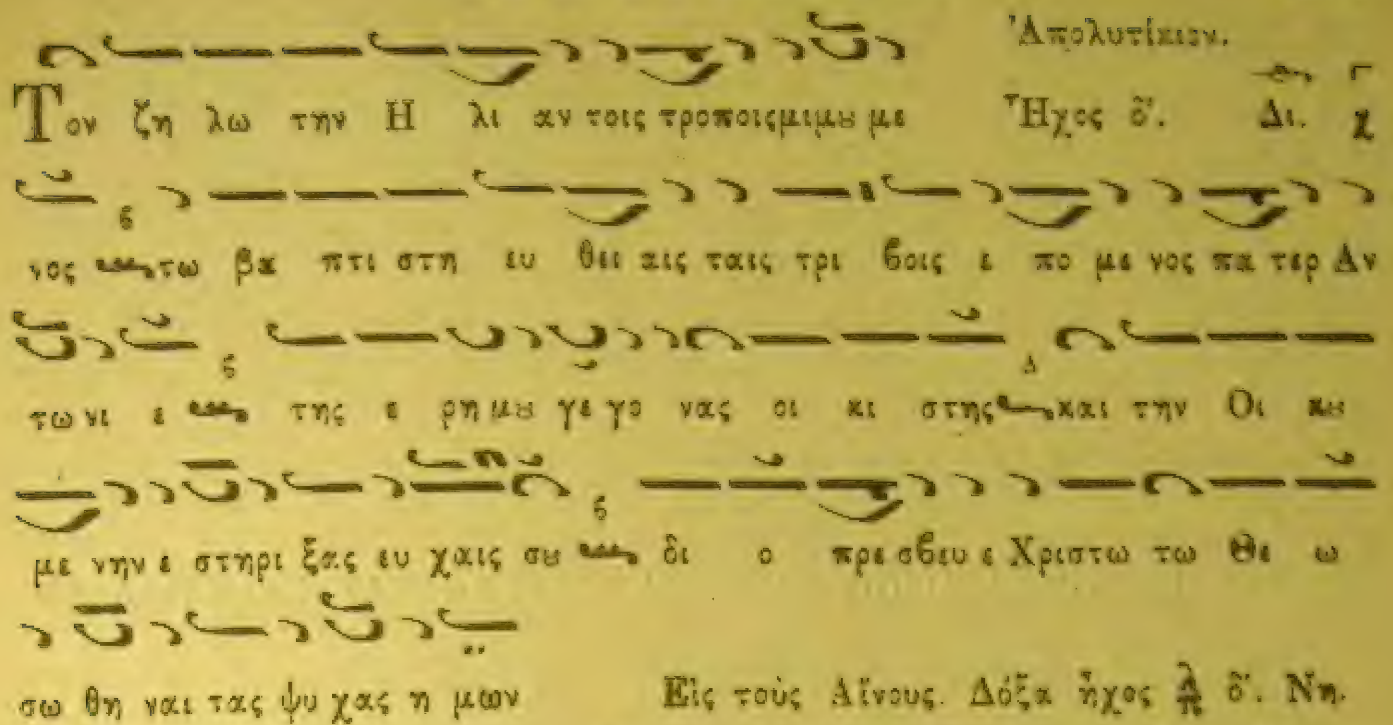 Ἀπολυτίκιον.
Τον ζη λω την Η λι αν τοις τροποις μιμȣ με Ἦχος δ΄. Δι.
νος τω βα πτι στη ευ θει αις ταις τρι βοις ε πο με νος πα τερ Αν
τω νι ε της ε ρη μȣ γε γο νας οι κι στης και την Οι κȣ
με νην ε στηρι ξας ευ χαις σȣ δι ο πρε σβευ ε Χριστω τω Θε ω
σω θη ναι τας ψυ χας η μων Εἰς τοὺς Αἴνους. Δόξα ἦχος πλ δ΄. Νη.